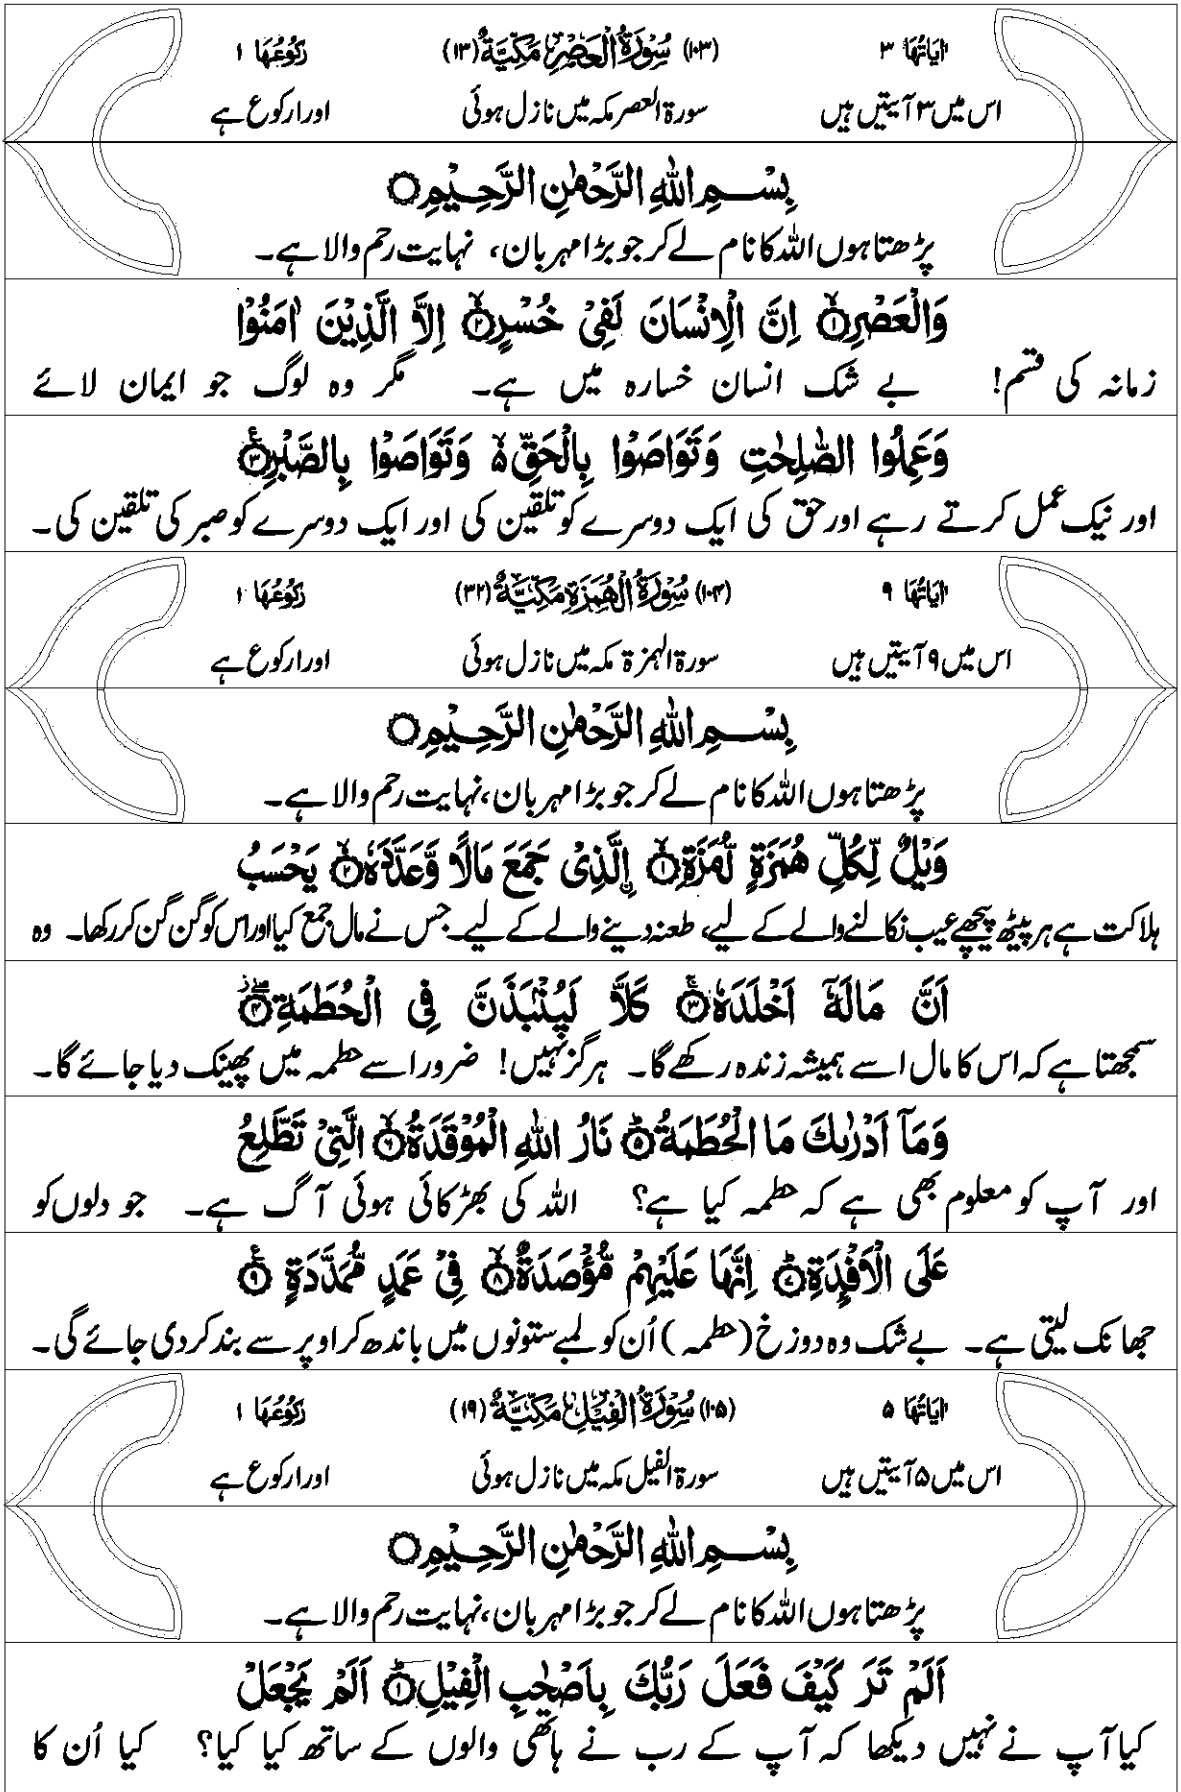 اٰيَاتُهَا ۳ (۱۰۳) سُوْرَةُ الْعَصْرِ مَكِّيَّةٌ (۱۳) رُكُوْعُهَا ۱
اس میں ۳ آیتیں ہیں سورۃ العصر مکہ میں نازل ہوئی اور ۱ رکوع ہے
بِسْــمِ اللهِ الرَّحْمٰنِ الرَّحِـيْمِ ۝
پڑھتا ہوں اللہ کا نام لے کر جو بڑا مہربان، نہایت رحم والا ہے۔
وَالْعَصْرِۙ۝۱ اِنَّ الْاِنْسَانَ لَفِيْ خُسْرٍۙ۝۲ اِلَّا الَّذِيْنَ اٰمَنُوْا
زمانہ کی قسم! بے شک انسان خسارہ میں ہے۔ مگر وہ لوگ جو ایمان لائے
وَعَمِلُوا الصّٰلِحٰتِ وَتَوَاصَوْا بِالْحَقِّ۵ۙ وَتَوَاصَوْا بِالصَّبْرِ۝۳ۧ
اور نیک عمل کرتے رہے اور حق کی ایک دوسرے کو تلقین کی اور ایک دوسرے کو صبر کی تلقین کی۔
اٰيَاتُهَا ۹ (۱۰۴) سُوْرَةُ الْهُمَزَةِ مَكِّيَّةٌ (۳۲) رُكُوْعُهَا ۱
اس میں ۹ آیتیں ہیں سورۃ الہمزۃ مکہ میں نازل ہوئی اور ۱ رکوع ہے
بِسْــمِ اللهِ الرَّحْمٰنِ الرَّحِـيْمِ ۝
پڑھتا ہوں اللہ کا نام لے کر جو بڑا مہربان، نہایت رحم والا ہے۔
وَيْلٌ لِّكُلِّ هُمَزَةٍ لُّمَزَةِۙ۝۱ اِۨلَّذِيْ جَمَعَ مَالًا وَّعَدَّدَهٗۙ۝۲ يَحْسَبُ
ہلاکت ہے ہر پیٹھ پیچھے عیب نکالنے والے کے لیے، طعنہ دینے والے کے لیے۔ جس نے مال جمع کیا اور اس کو گن گن کر رکھا۔ وہ
اَنَّ مَالَهٗٓ اَخْلَدَهٗ۝۳ۚ كَلَّا لَيُنْۢبَذَنَّ فِي الْحُطَمَةِ۝۴ۖ
سمجھتا ہے کہ اس کا مال اسے ہمیشہ زندہ رکھے گا۔ ہرگز نہیں! ضرور اسے حطمہ میں پھینک دیا جائے گا۔
وَمَآ اَدْرٰىكَ مَا الْحُطَمَةُؕ۝۵ نَارُ اللهِ الْمُوْقَدَةُۙ۝۶ الَّتِيْ تَطَّلِعُ
اور آپ کو معلوم بھی ہے کہ حطمہ کیا ہے؟ اللہ کی بھڑکائی ہوئی آگ ہے۔ جو دلوں کو
عَلَى الْاَفْـِٕدَةِؕ۝۷ اِنَّهَا عَلَيْهِمْ مُّؤْصَدَةٌۙ۝۸ فِيْ عَمَدٍ مُّمَدَّدَةٍ۝۹ۧ
جھانک لیتی ہے۔ بے شک وہ دوزخ (حطمہ) اُن کو لمبے ستونوں میں باندھ کر اوپر سے بند کر دی جائے گی۔
اٰيَاتُهَا ۵ (۱۰۵) سُوْرَةُ الْفِيْلِ مَكِّيَّةٌ (۱۹) رُكُوْعُهَا ۱
اس میں ۵ آیتیں ہیں سورۃ الفیل مکہ میں نازل ہوئی اور ۱ رکوع ہے
بِسْــمِ اللهِ الرَّحْمٰنِ الرَّحِـيْمِ ۝
پڑھتا ہوں اللہ کا نام لے کر جو بڑا مہربان، نہایت رحم والا ہے۔
اَلَمْ تَرَ كَيْفَ فَعَلَ رَبُّكَ بِاَصْحٰبِ الْفِيْلِؕ۝۱ اَلَمْ يَجْعَلْ
کیا آپ نے نہیں دیکھا کہ آپ کے رب نے ہاتھی والوں کے ساتھ کیا کیا؟ کیا اُن کا